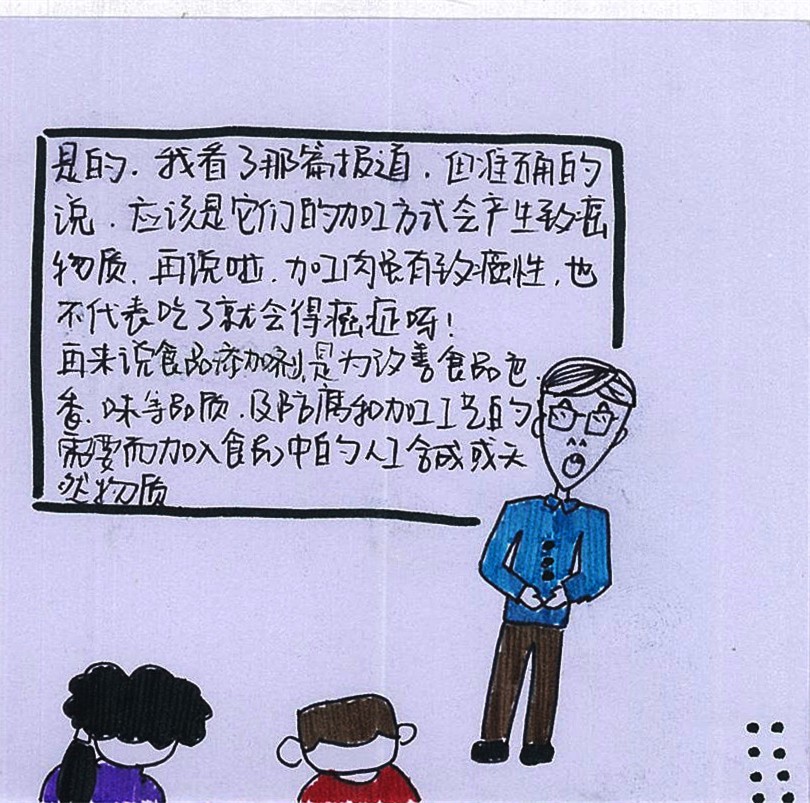 是的.我看了那篇报道.但准确的
说.应该是它们的加工方式会产生致癌
物质.再说啦.加工肉虽有致癌性,也
不代表吃了就会得癌症呀!
再来说食品添加剂,是为改善食品色
香.味等品质.及防腐和加工工艺的
需要而加入食品中的人工合成或天
然物质